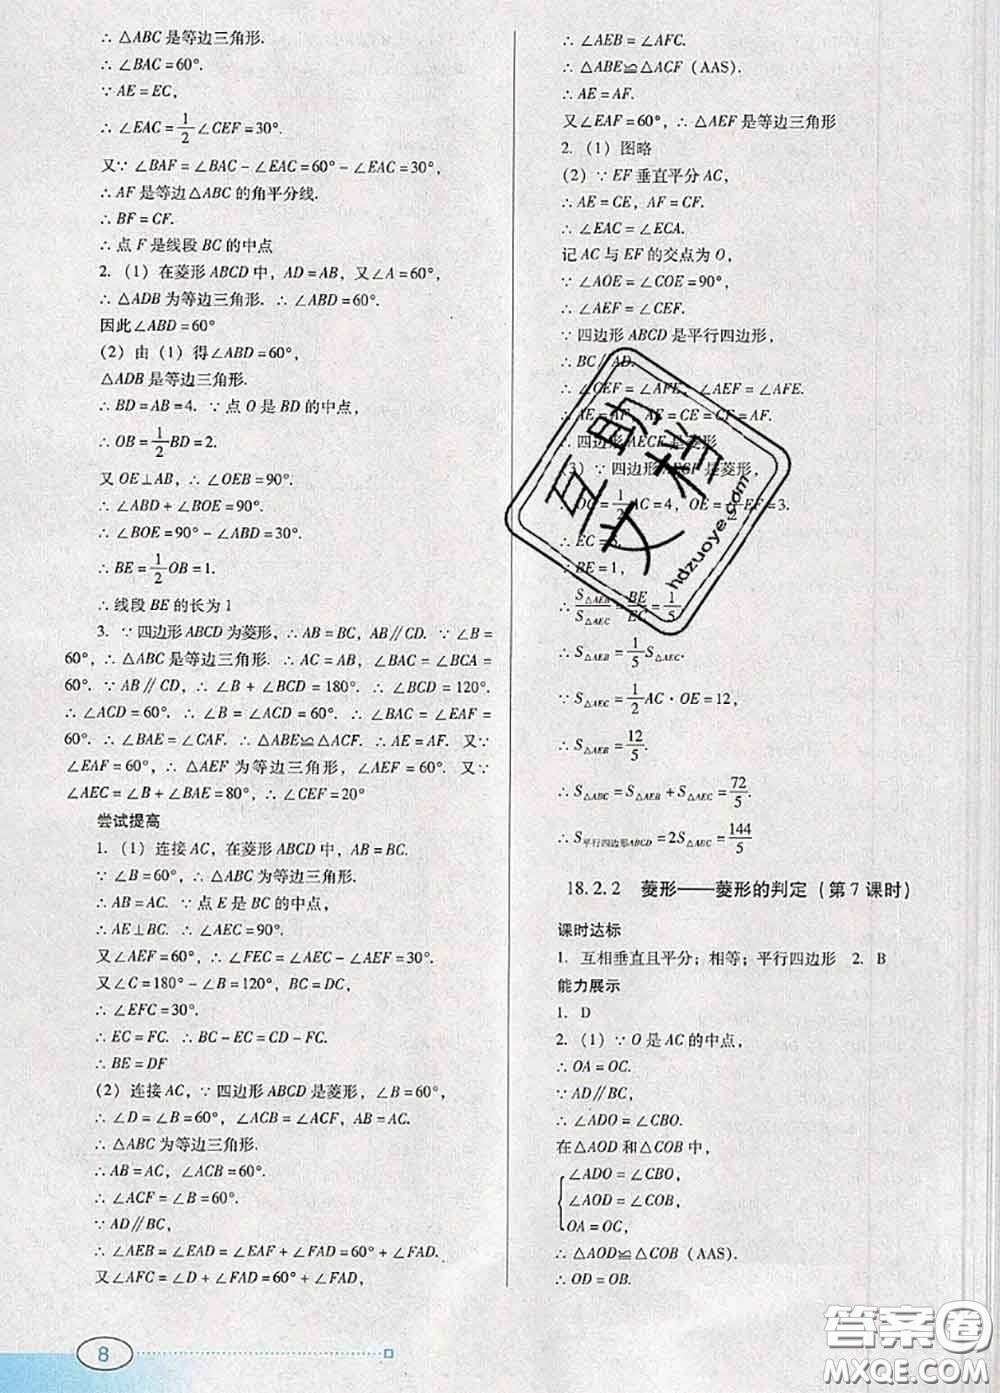 ∴ △ABC 是等边三角形.
∴ ∠BAC = 60°.
∵ AE = EC,
∴ ∠EAC = 1/2 ∠CEF = 30°.
又∵ ∠BAF = ∠BAC - ∠EAC = 60° - ∠EAC = 30°,
∴ AF 是等边△ABC 的角平分线.
∴ BF = CF.
∴ 点 F 是线段 BC 的中点
2. (1) 在菱形 ABCD 中, AD = AB, 又∠A = 60°,
∴ △ADB 为等边三角形. ∴ ∠ABD = 60°.
因此∠ABD = 60°
(2) 由 (1) 得∠ABD = 60°,
△ADB 是等边三角形.
∴ BD = AB = 4. ∵ 点 O 是 BD 的中点,
∴ OB = 1/2 BD = 2.
又 OE⊥AB, ∴ ∠OEB = 90°.
∴ ∠ABD + ∠BOE = 90°.
∴ ∠BOE = 90° - 60° = 30°.
∴ BE = 1/2 OB = 1.
∴ 线段 BE 的长为 1
3. ∵ 四边形 ABCD 为菱形, ∴ AB = BC, AB∥CD. ∵ ∠B =
60°, ∴ △ABC 是等边三角形. ∴ AC = AB, ∠BAC = ∠BCA =
60°. ∵ AB∥CD, ∴ ∠B + ∠BCD = 180°. ∴ ∠BCD = 120°.
∴ ∠ACD = 60°. ∴ ∠B = ∠ACD = 60°. ∴ ∠BAC = ∠EAF =
60°. ∴ ∠BAE = ∠CAF. ∴ △ABE≌△ACF. ∴ AE = AF. 又∵
∠EAF = 60°, ∴ △AEF 为等边三角形, ∠AEF = 60°. 又∵
∠AEC = ∠B + ∠BAE = 80°, ∴ ∠CEF = 20°
尝试提高
1. (1) 连接 AC, 在菱形 ABCD 中, AB = BC.
∵ ∠B = 60°, ∴ △ABC 是等边三角形.
∴ AB = AC. ∵ 点 E 是 BC 的中点,
∴ AE⊥BC. ∴ ∠AEC = 90°.
又∠AEF = 60°, ∴ ∠FEC = ∠AEC - ∠AEF = 30°.
又∠C = 180° - ∠B = 120°, BC = DC,
∴ ∠EFC = 30°.
∴ EC = FC. ∴ BC - EC = CD - FC.
∴ BE = DF
(2) 连接 AC, ∵ 四边形 ABCD 是菱形, ∠B = 60°,
∴ ∠D = ∠B = 60°, ∠ACB = ∠ACF, AB = AC.
∴ △ABC 为等边三角形.
∴ AB = AC, ∠ACB = 60°.
∴ ∠ACF = ∠B = 60°.
∵ AD∥BC,
∴ ∠AEB = ∠EAD = ∠EAF + ∠FAD = 60° + ∠FAD.
又∠AFC = ∠D + ∠FAD = 60° + ∠FAD,
8
∴ ∠AEB = ∠AFC.
∴ △ABE≌△ACF (AAS).
∴ AE = AF.
又∠EAF = 60°, ∴ △AEF 是等边三角形
2. (1) 图略
(2) ∵ EF 垂直平分 AC,
∴ AE = CE, AF = CF.
∴ ∠EAC = ∠ECA.
记 AC 与 EF 的交点为 O,
∵ ∠AOE = ∠COE = 90°,
∴ ∠AEF = ∠CEF.
∵ 四边形 ABCD 是平行四边形,
∴ BC∥AD.
∴ ∠CEF = ∠AFE, ∠AEF = ∠AFE.
∴ AE = AF, AE = CE = CF = AF.
∴ 四边形 AECF 是菱形
(3) ∵ 四边形 AECF 是菱形,
∴ OC = 1/2 AC = 4, OE = 1/2 EF = 3.
∴ EC = 5.
∵ BE = 1,
∴ S△AEB/S△AEC = BE/EC = 1/5
∴ S△AEB = 1/5 S△AEC.
∵ S△AEC = 1/2 AC · OE = 12,
∴ S△AEB = 12/5.
∴ S△ABC = S△AEB + S△AEC = 72/5.
∴ S平行四边形ABCD = 2S△ABC = 144/5
18.2.2 菱形——菱形的判定 (第 7 课时)
课时达标
1. 互相垂直且平分; 相等; 平行四边形 2. B
能力展示
1. D
2. (1) ∵ O 是 AC 的中点,
∴ OA = OC.
∵ AD∥BC,
∴ ∠ADO = ∠CBO.
在△AOD 和△COB 中,
∠ADO = ∠CBO,
∠AOD = ∠COB,
OA = OC,
∴ △AOD≌△COB (AAS).
∴ OD = OB.
互助文档
hdzuoye.com
答案圈
MXQE.COM